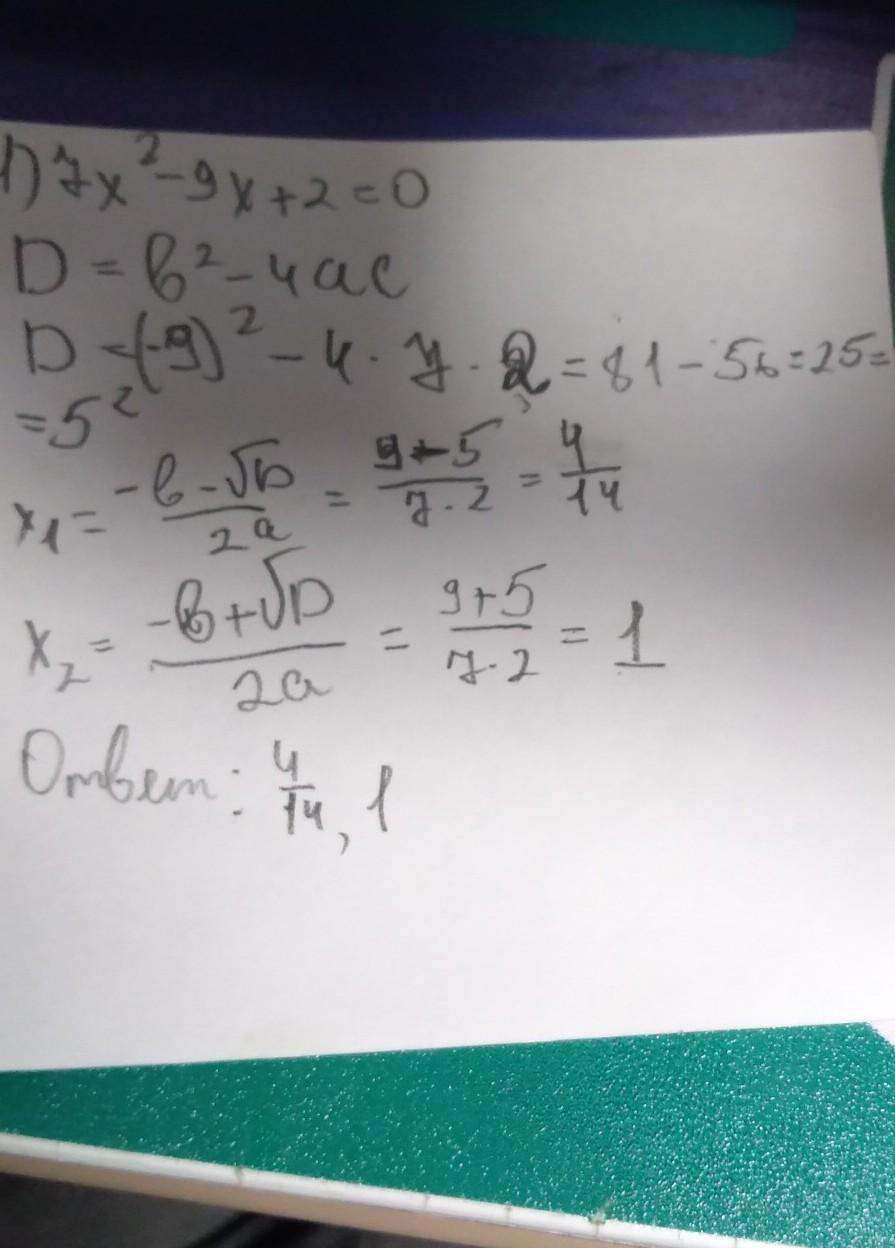 1) 7x² - 9x + 2 = 0
D = b² - 4ac
D = (-9)² - 4 · 7 · 2 = 81 - 56 = 25 =
= 5²
x₁ = (-b - √D)/(2a) = (9 - 5)/(7 · 2) = 4/14
x₂ = (-b + √D)/(2a) = (9 + 5)/(7 · 2) = 1
Ответ: 4/14, 1